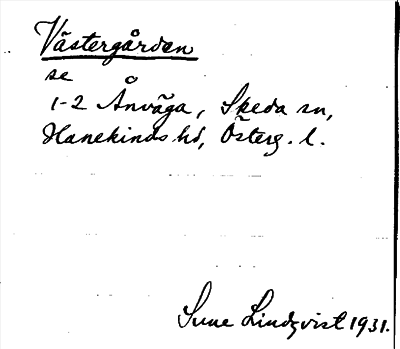 Västergården
se
1-2 Ånväga, Skeda sn,
Hanekinds hd, Österg. l.
Sune Lindqvist 1931.